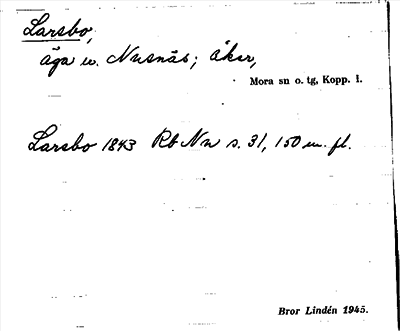 Larsbo,
äga u. Nusnäs; åker,
Mora sn o. tg, Kopp. l.
Larsbo 1843 Rb Nn s. 31, 150 m. fl.
Bror Lindén 1945.